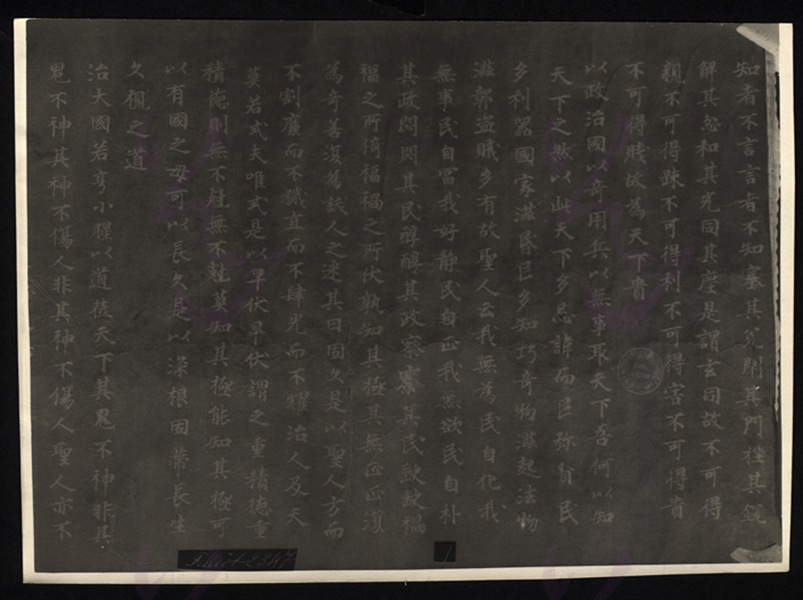 知者不言言者不知塞其兌閉其門挫其銳
解其忿和其光同其塵是謂玄同故不可得
親不可得踈不可得利不可得害不可得貴
不可得賤故為天下貴
以政治國以奇用兵以無事取天下吾何以知
天下之然以此天下多忌諱而民弥貧民
多利器國家滋昏民多知巧奇物滋起法物
滋彰盜賊多有故聖人云我無為民自化我
無事民自富我好靜民自正我無欲民自朴
其政悶悶其民醇醇其政察察其民缺缺禍
福之所倚福禍之所伏孰知其極其無正正復
為奇善復為訞人之迷其日固久是以聖人方而
不割廉而不穢直而不肆光而不耀治人及天
莫若式夫唯式是以早伏早伏謂之重積德重
積德則無不剋無不剋莫知其極能知其極可
以有國之母可以長久是以深根固蔕長生
久視之道
治大國若亨小腥以道莅天下其鬼不神非其
鬼不神其神不傷人非其神不傷人聖人亦不
Pelliot 2347
1